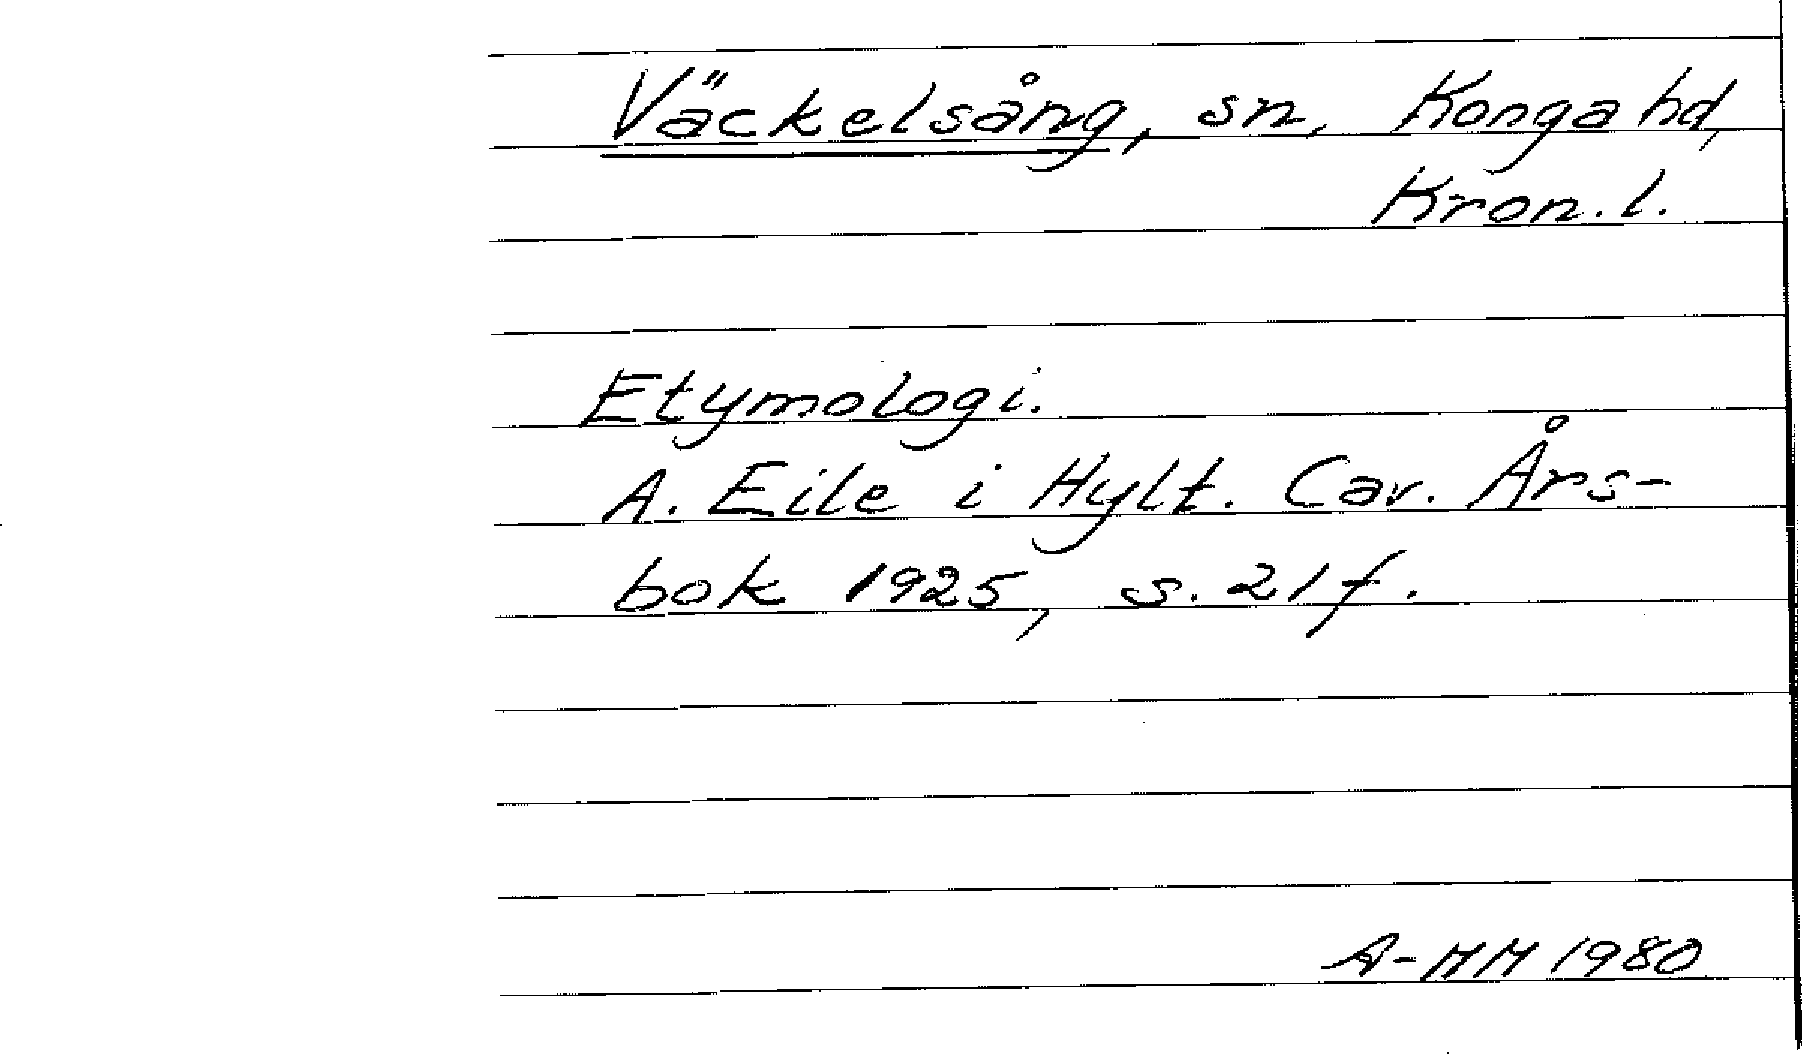 Väckelsång, sn, Konga hd,
Kron. l.
Etymologi.
A. Eile i Hylt. Cav. Års-
bok 1925, s. 21 f.
A-MM 1980